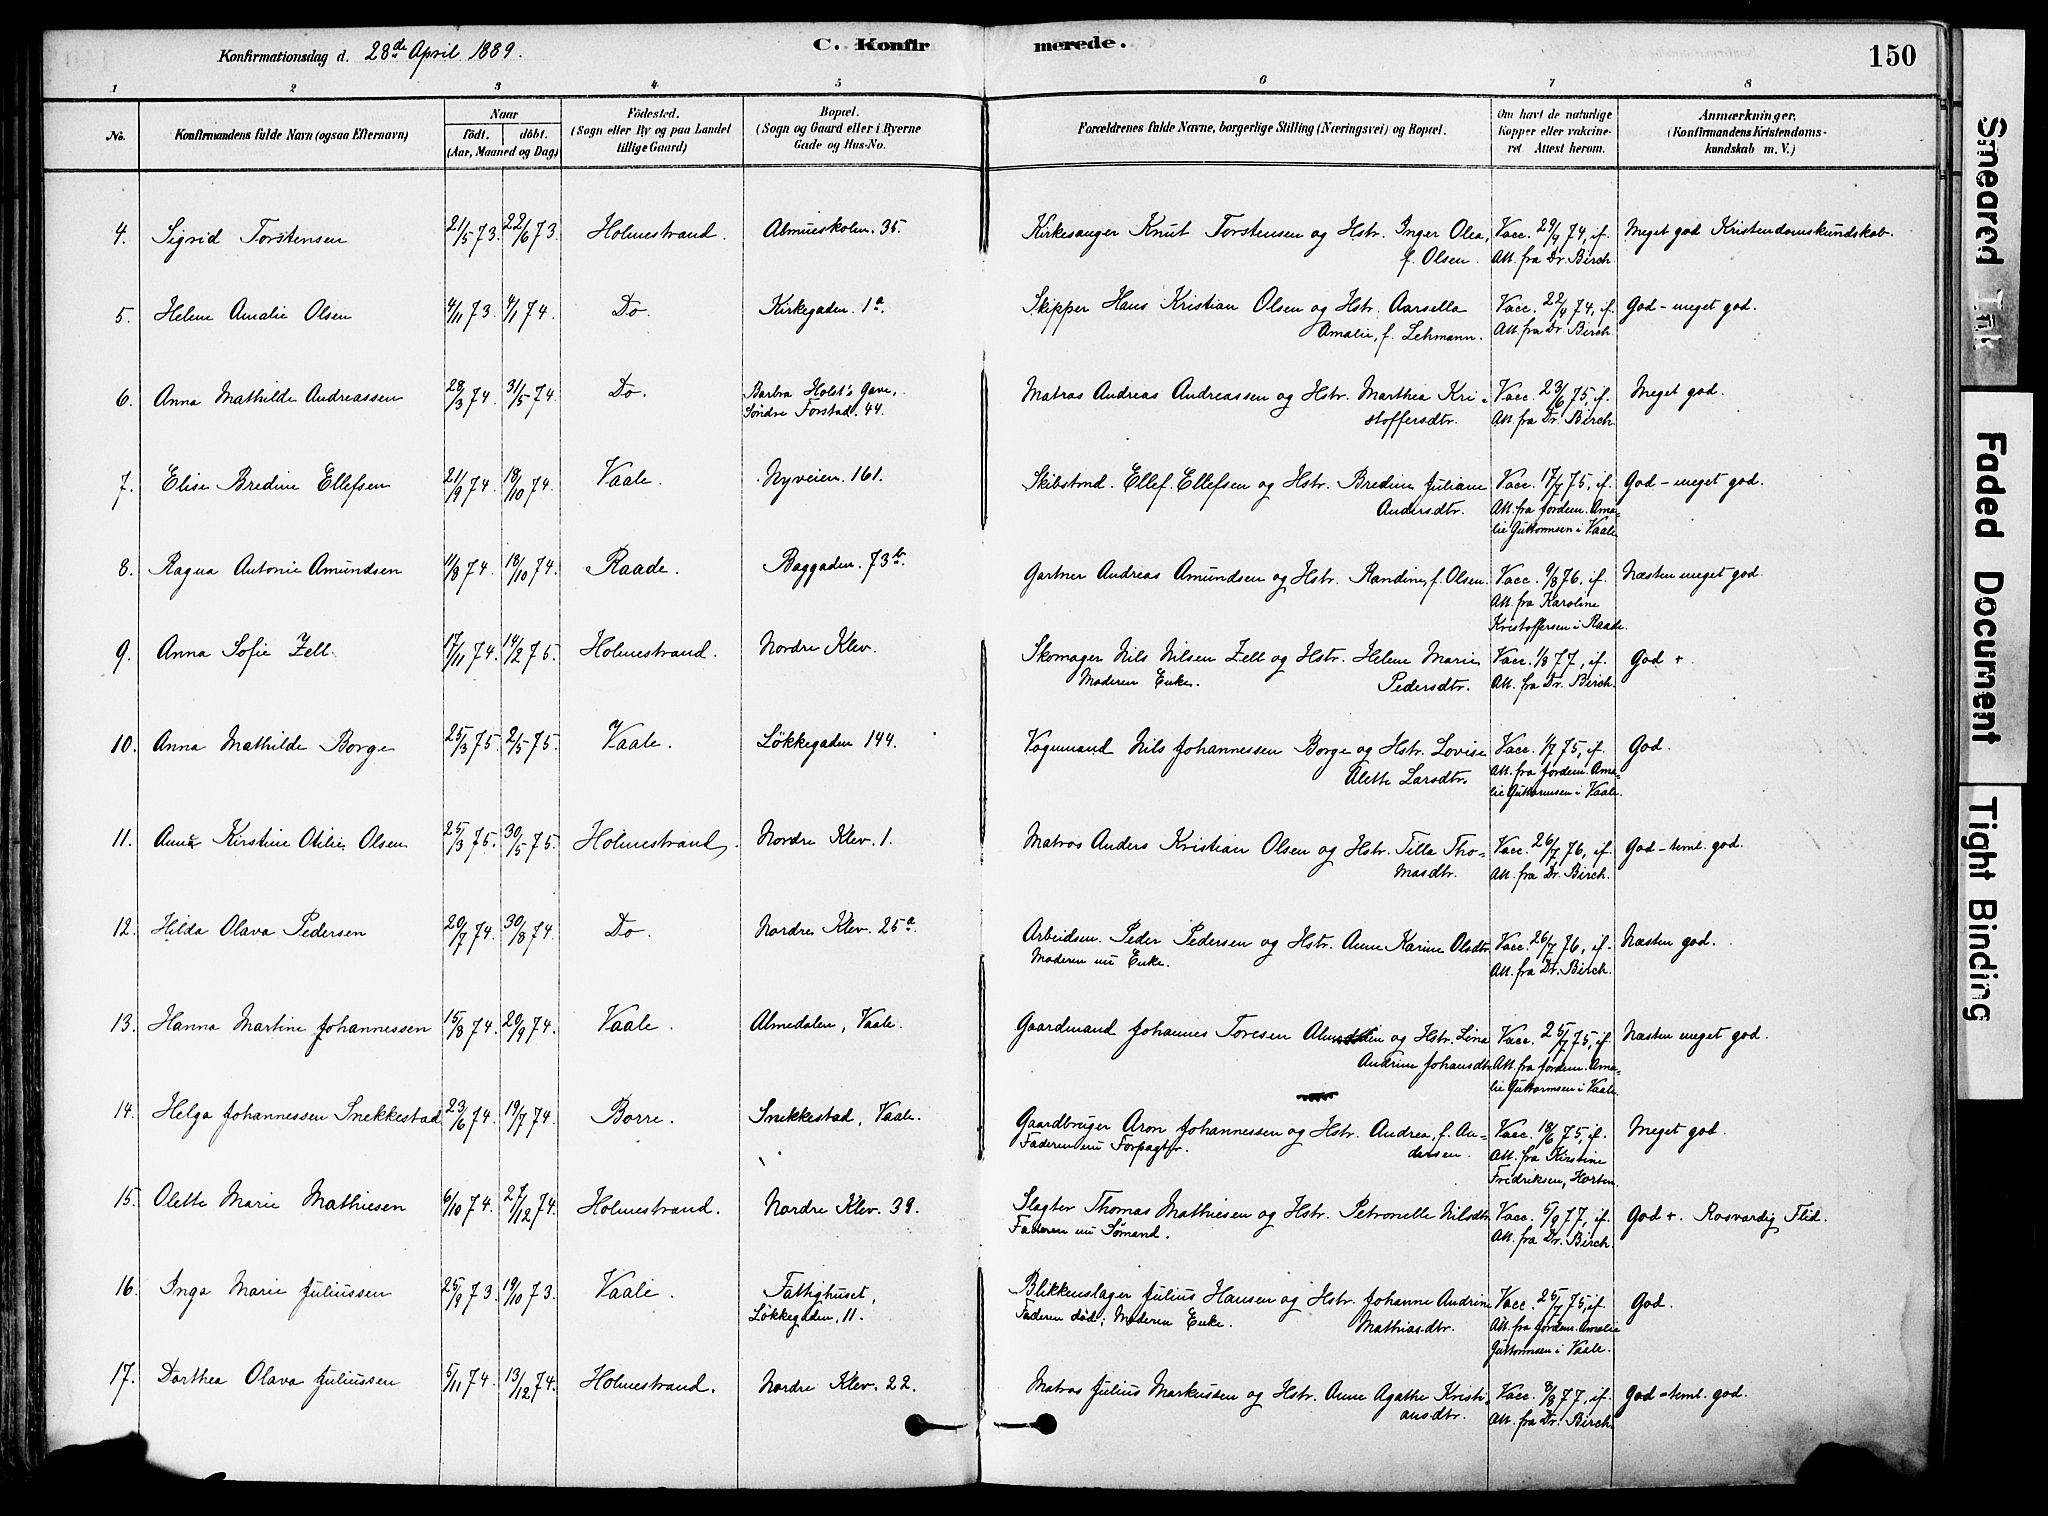 150
Konfirmationsdag d. 28de April 1889.
C. Konfirmerede.
1 2 3 4 5 6 7 8
No.
Konfirmandens fulde Navn (ogsaa Efternavn)
Naar
födt. döbt.
(Aar, Maaned og Dag)
Födested.
(Sogn eller By og paa Landet
tillige Gaard)
Bopæl.
(Sogn og Gaard eller i Byerne
Gade og Hus-No.
Forældrenes fulde Navne, borgerlige Stilling (Næringsvei) og Bopæl.
Om havt de naturlige
Kopper eller vakcine-
ret Attest herom.
Anmærkninger,
(Konfirmandens Kristendoms-
kundskab m. V.)
4. Sigrid Torstensen 21/5 73. 22/6 73. Holmestrand. Almueskolen. 35. Kirkesanger Knut Torstensen og Hstr. Inger Olea, Vacc. 29/4 74, if. Meget god Kristendomskundskab.
f. Olsen. Att. fra Dr. Birch.
5. Helene Amalie Olsen 4/11 73 4/1 74. Do. Kirkegaden. 1a. Skipper Hans Kristian Olsen og Hstr. Aarsella Vacc. 22/4 74, if. God - meget god.
Amalie, f. Lehmann. Att. fra Dr. Birch
6. Anna Mathilde Andreassen 28/3 74. 31/5 74 Do. Barbra Holst's Gave, Matros Andreas Andreassen og Hstr. Marthea Kri- Vacc. 23/6 75, if. Meget god.
Söndre Forstad. 44. stoffersdtr. Att. fra Dr. Birch.
7. Elise Bredine Ellefsen 21/9 74. 18/10 74. Vaale. Nyveien. 161. Skibstmd. Ellef Ellefsen og Hstr. Bredine Juliane Vacc. 17/7 75, if. God - meget god.
Andersdtr. Att. fra Jordem. Ama-
lie Guttormsen i Vaale
8. Ragna Antonie Amundsen 11/8 74. 18/10 74. Raade. Baggaden. 73b. Gartner Andreas Amundsen og Hstr. Randine, f. Olsen. Vacc. 9/8 76, if. Næsten meget god.
Att. fra Karoline
Kristoffersen i Raade.
9. Anna Sofie Zell 17/11 74. 14/2 75. Holmestrand. Nordre Klev. Skomager Nils Nilsen Zell og Hstr. Helene Marie Vacc. 1/8 77, if. God +.
Moderen Enke. Pedersdtr. Att. fra Dr. Birch.
10. Anna Mathilde Borge 25/3 75. 2/5 75. Vaale. Løkkegaden 144. Vognmand Nils Johannessen Borge og Hstr. Lovise Vacc. 1/7 75, if. God.
Alette Larsdtr. Att. fra Jordem. Ama-
lie Guttormsen i Vaale.
11. Anna Kirstine Otilie Olsen 25/3 75. 30/5 75. Holmestrand. Nordre Klev. 1. Matros Anders Kristian Olsen og Hstr. Tilla Tho- Vacc. 26/7 76, if. God - teml. god.
masdtr. Att. fra Dr. Birch.
12. Hilda Olava Pedersen 20/7 74. 30/8 74. Do. Nordre Klev. 25a. Arbeidsm. Peder Pedersen og Hstr. Anne Karine Olsdtr. Vacc. 26/7 76, if. Næsten god.
Moderen nu Enke. Att. fra Dr. Birch.
13. Hanna Martine Johannessen 15/8 74. 20/9 74. Vaale. Almedalen, Vaale. Gaardmand Johannes Toresen og Hstr. Lina Vacc. 25/7 75, if. Næsten meget god.
Andrine Johansdtr. Att. fra Jordem. Ama-
lie Guttormsen i Vaale.
14. Helga Johannessen Snekkestad 23/6 74. 19/7 74. Borre. Snekkestad, Vaale. Gaardbruger Aron Johannessen og Hstr. Andrea, f. An- Vacc. 18/6 75, if. Meget god.
Faderen nu Forpagter. dersen. Att. fra Kirstine
Fredriksen, Horten.
15. Olette Marie Mathiesen 6/10 74. 27/12 74. Holmestrand. Nordre Klev. 39. Slagter Thomas Mathiesen og Hstr. Petronelle Nilsdtr. Vacc. 5/9 77, if. God +. Rosværdig Flid.
Faderen nu Sømand. Att. fra Dr. Birch.
16. Inga Marie Juliussen 25/9 73. 19/10 73. Vaale. Fattighuset, Blikkenslager Julius Hansen og Hstr. Johanne Andrine Vacc. 25/7 75, if. God.
Løkkegaden, 11. Faderen død; Moderen Enke. Mathiasdtr. Att. fra Jordem. Amalie
Guttormsen i Vaale.
17. Dorthea Olava Juliussen 5/11 74. 13/12 74. Holmestrand. Nordre Klev. 22. Matros Julius Markussen og Hstr. Anne Agathe Kristi- Vacc. 8/8 77, if. God - teml. god.
ansdtr. Att. fra Dr. Birch.
Smeared Ink
Faded Document
Tight Binding